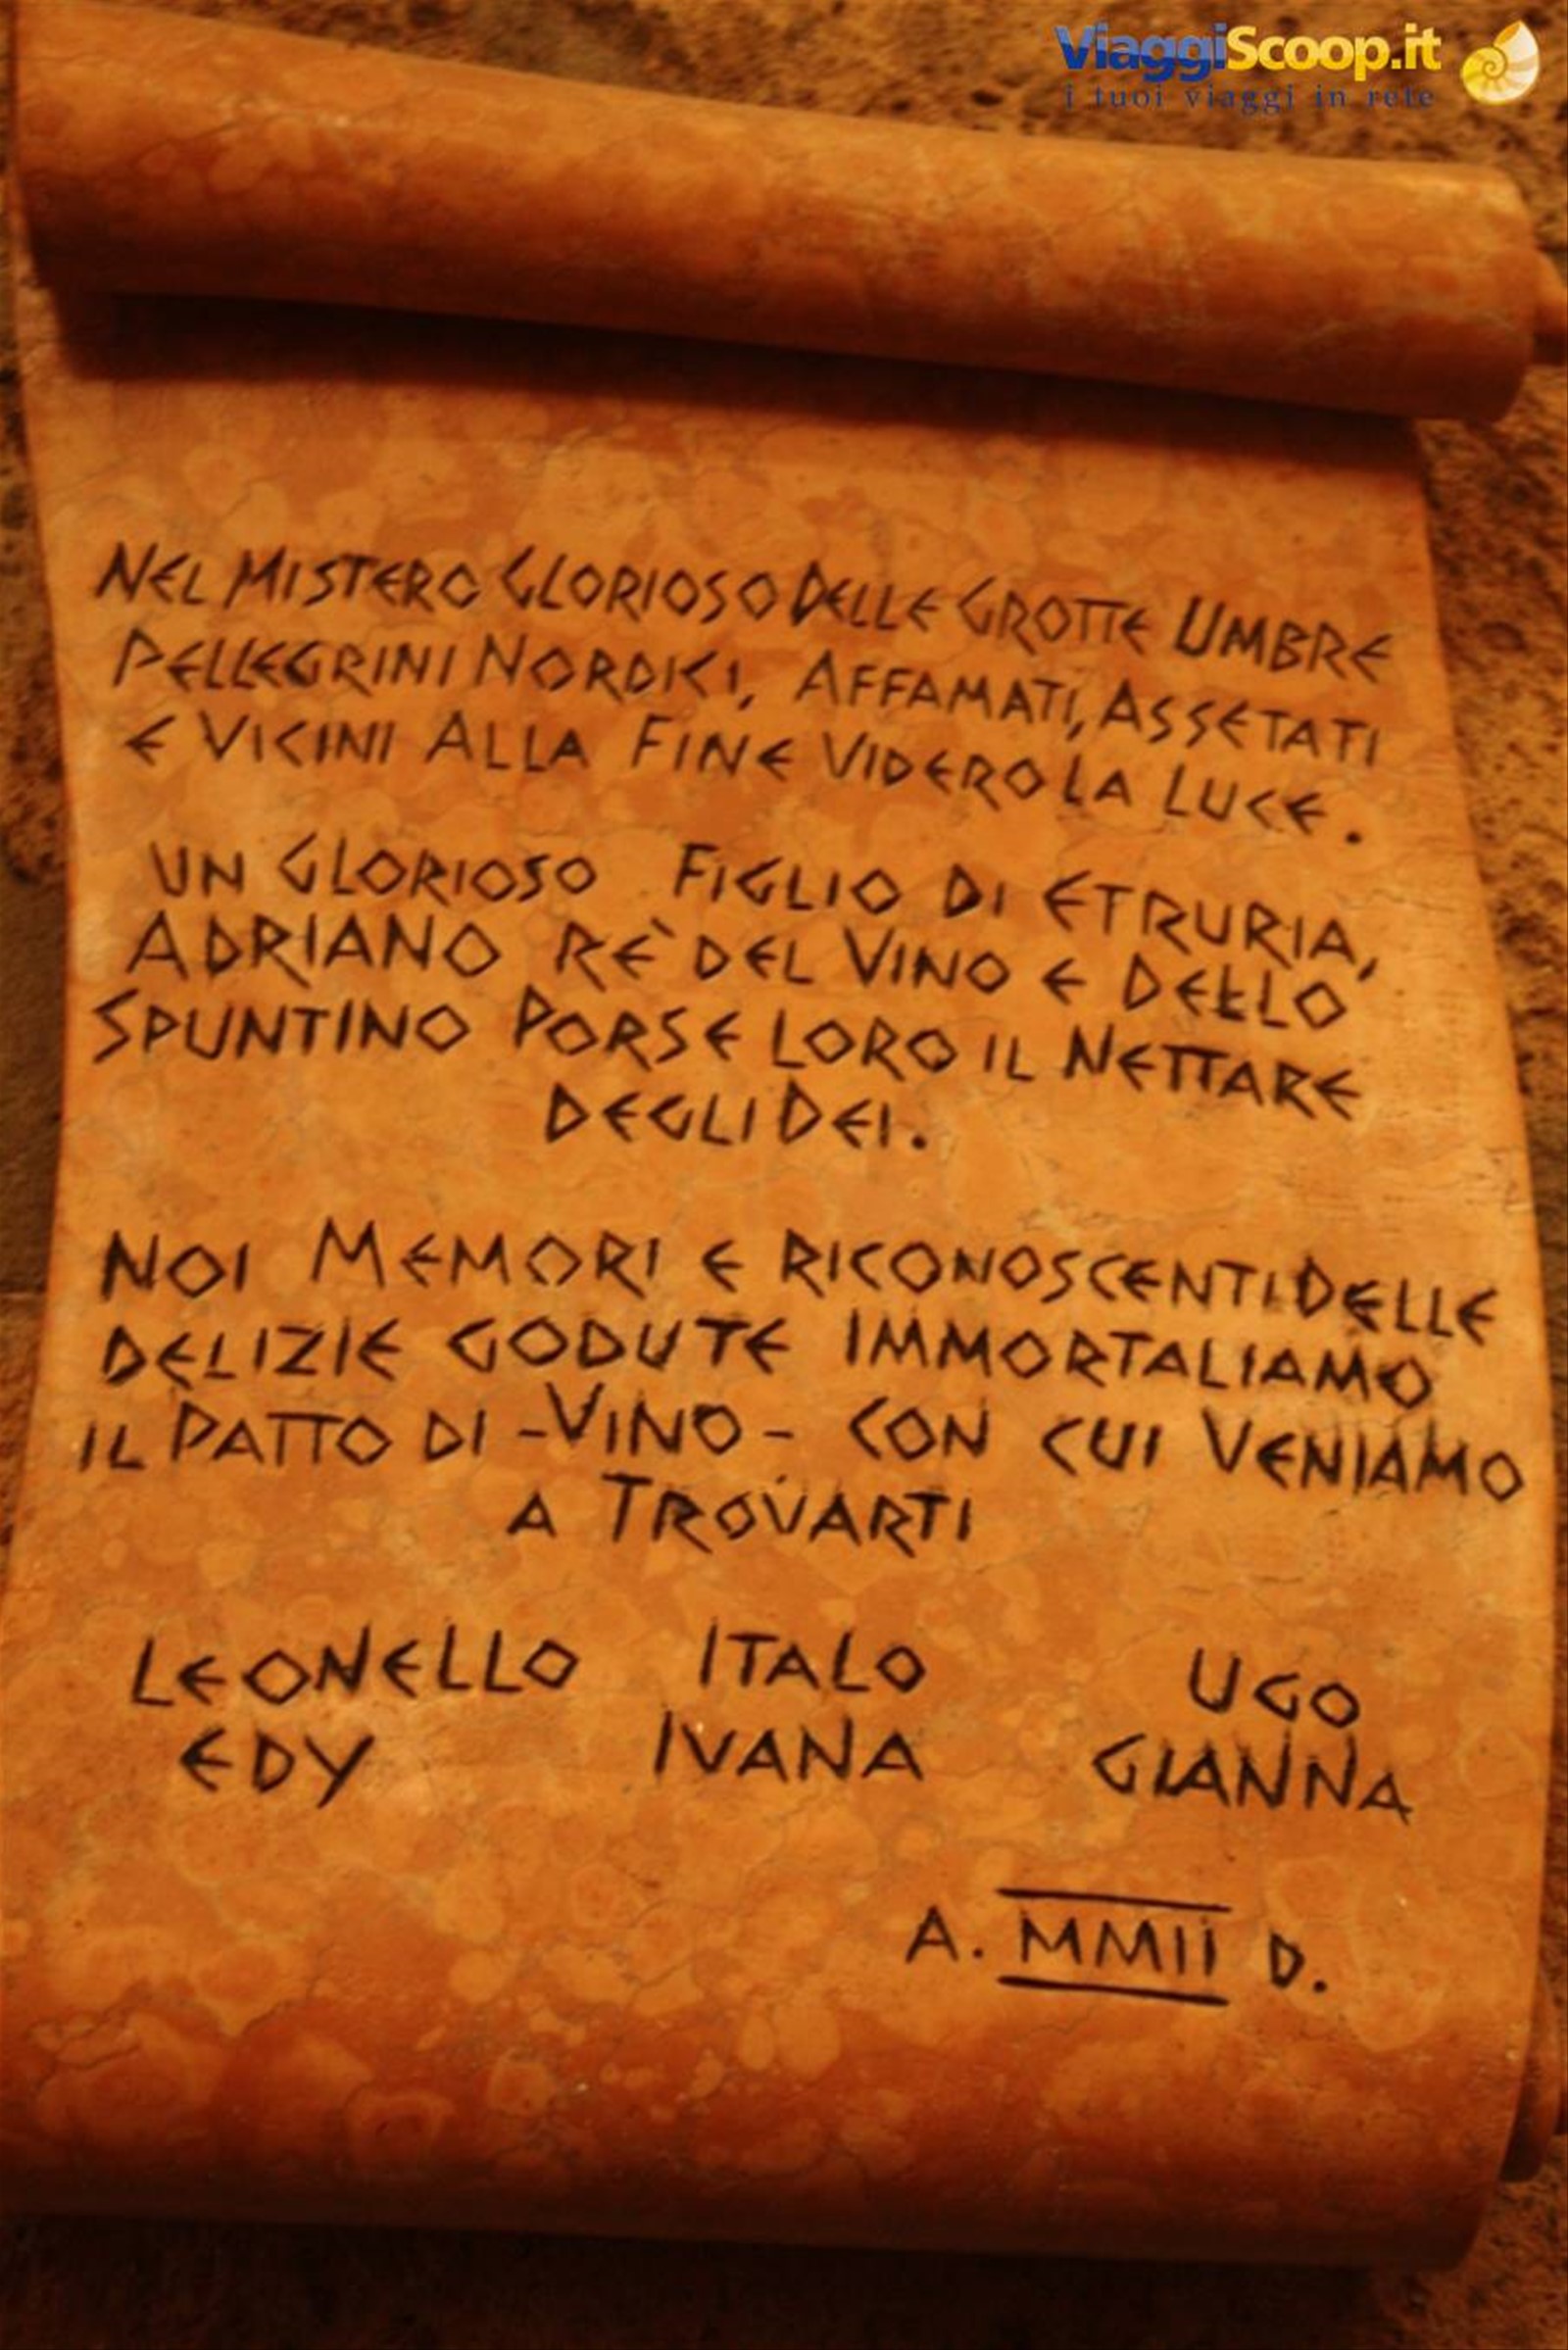 ViaggiScoop.it
i tuoi viaggi in rete
NEL MISTERO GLORIOSO DELLE GROTTE UMBRE
PELLEGRINI NORDICI, AFFAMATI, ASSETATI
E VICINI ALLA FINE VIDERO LA LUCE.
UN GLORIOSO FIGLIO DI ETRURIA,
ADRIANO RE` DEL VINO E DELLO
SPUNTINO PORSE LORO IL NETTARE
DEGLI DEI.
NOI MEMORI E RICONOSCENTI DELLE
DELIZIE GODUTE IMMORTALIAMO
IL PATTO DI -VINO- CON CUI VENIAMO
A TROVARTI
LEONELLO ITALO UGO
EDY IVANA GIANNA
A. MMII D.